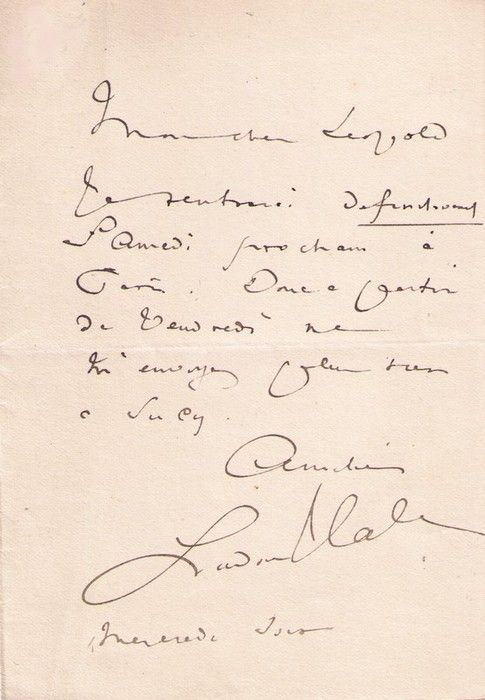 Mon cher Leopold
Je rentrerai definitivement
Samedi prochain à
Paris. Donc a partir
de Vendredi ne
m'envoyez plus rien
a Sucy.
Amitiés
Ludov Hale
Mercredi soir